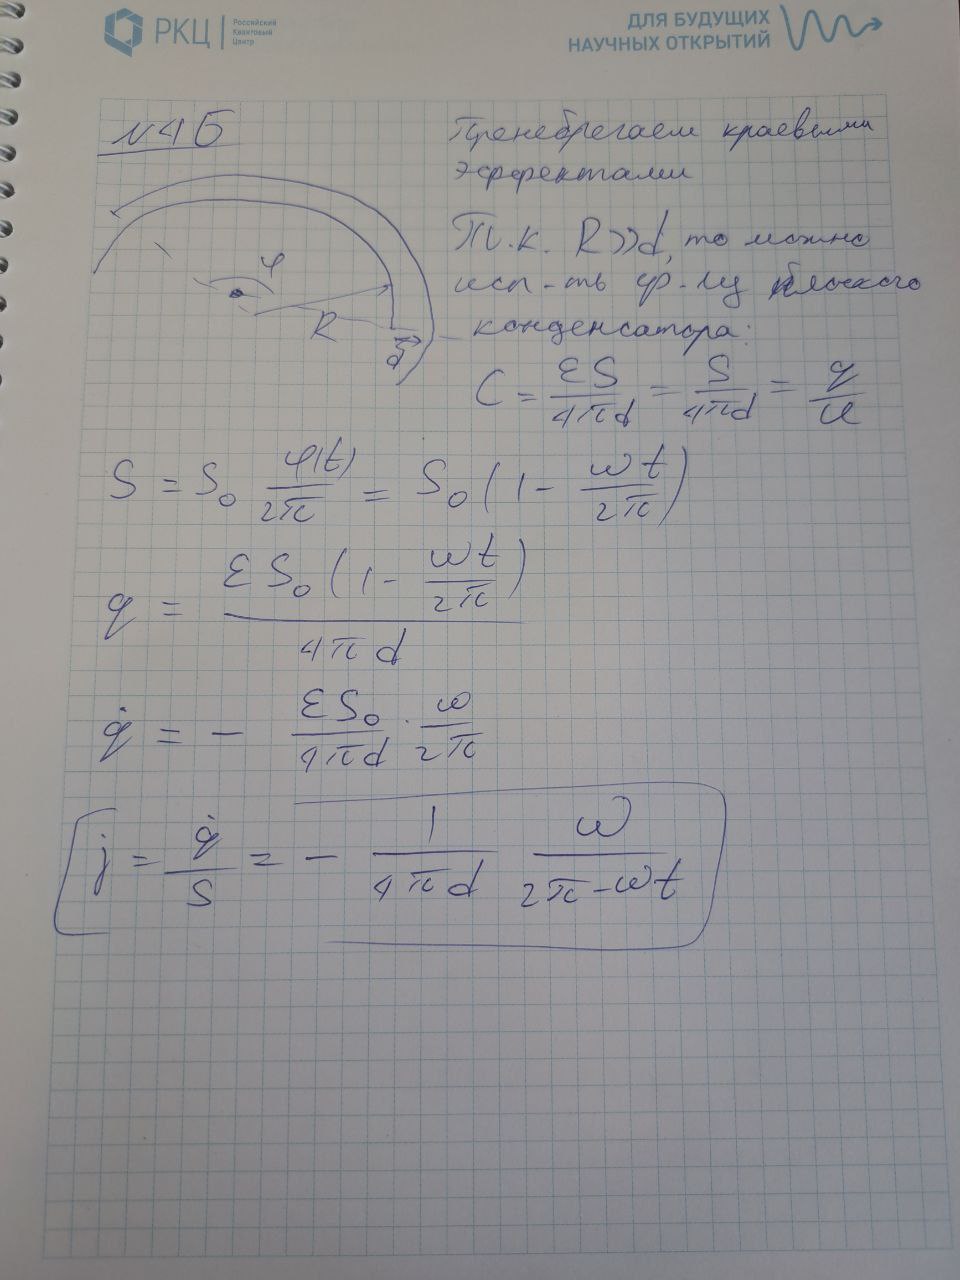 РКЦ
Российский
Квантовый
Центр
ДЛЯ БУДУЩИХ
НАУЧНЫХ ОТКРЫТИЙ
№4Б
Пренебрегаем краевыми
эффектами
Т.к. R>>d, то можно
исп-ть ф-лу плоского
конденсатора:
φ
R
d
C = εS/4πd = S/4πd = q/U
S = S₀ φ(t)/2π = S₀(1 - ωt/2π)
q = εS₀(1 - ωt/2π)/4πd
q̇ = - εS₀/4πd · ω/2π
j = q̇/S = - 1/4πd ω/2π-ωt